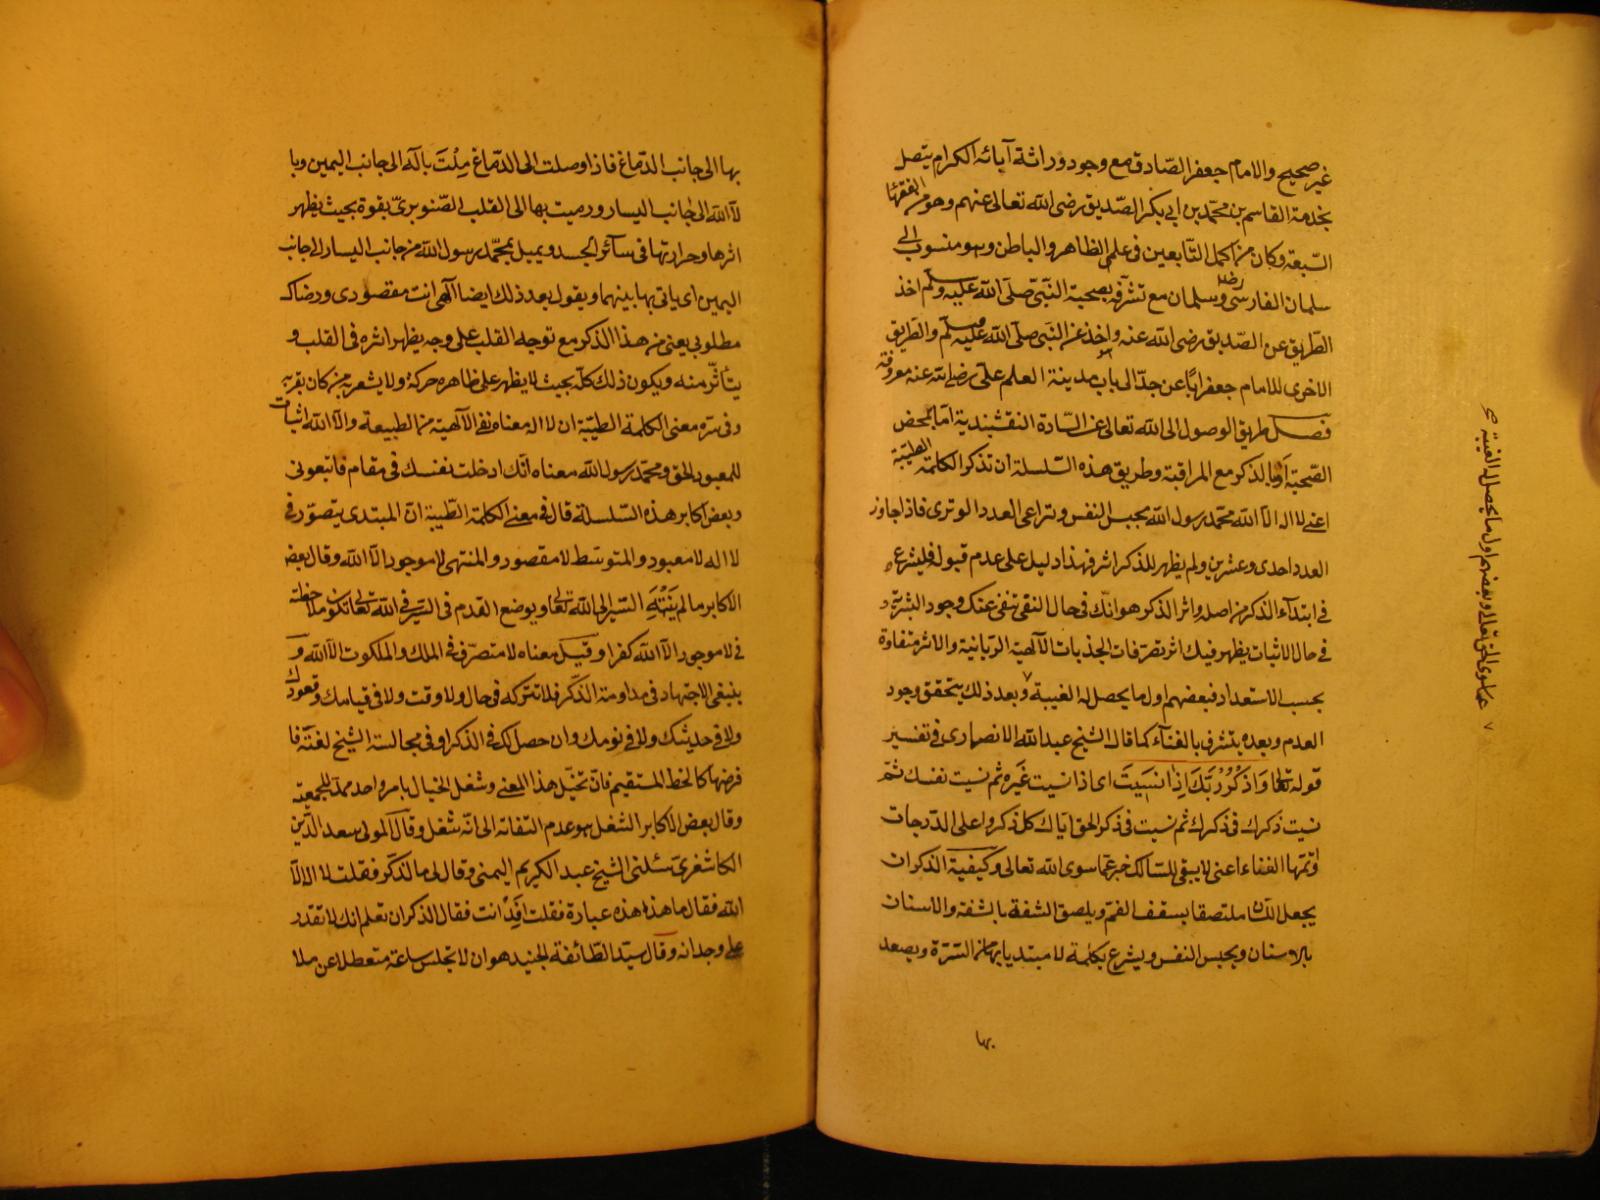 غير صحيح والامام جعفر الصّادق مع وجود وراثة آبائه الكرام يتصل
بخدمة القاسم بن محمّد بن ابي بكر الصّديق رضى الله تعالى عنهم وهو من الفقهاء
السّبعة وكان من اكمل التّابعين فى علم الظاهر والباطن وهو منسوب الى
سلمان الفارسى رضه وسلمان مع تشرفه بصحبة النّبىّ صلّى الله عليه وسلّم اخذ
الطّريق عن الصّديق رضى الله عنه واخذ عن النبى صلّى الله عليه وسلّم والطّريق
الاخرى للامام جعفر ابًا عن جدّ الى باب مدينة العلم على رضى الله عنه معروفة
فصل طريق الوصول الى الله تعالى عند السّادة النقشبندية امّا بمحض
الصّحبة او بالذكر مع المراقبة وطريق هذه السّلسلة ان تذكر الكلمة الطيّبة
اعنى لا اله الا الله محمد رسول الله بحبس النفس وتراعى العدد الوترى فاذا جاوز
العدد احدى وعشرين ولم يظهر للذكر اثر فهذا دليل على عدم قبوله فليشرع
فى ابتداء الذكر من اصله واثر الذكر هو انّك فى حال النفى تنفى عنك وجود البشرية و
فى حال الاثبات يظهر فيك اثر تصرفات الجذبات الآلهية الرّبانية والاثر متفاوة
بحسب الاستعداد فبعضهم اول ما يحصل له الغيبة ٧ وبعد ذلك يتحقق وجود
العدم وبعده يتشرف بالفنآء كما قال الشيخ عبد الله الانصارى فى تفسير
قوله تعالى وَاذْكُرْ رَبَّكَ اِذَا نَسَيتَ اى اذا نسيت غيره ثم نسيت نفسك ثمّ
نسيت ذكرك فى ذكرك ثم نسيت فى ذكر الحق ايّاك كل ذكر واعلى الدّرجات
واتمّها الفناء اعنى لا يبقى للسّالك خبر عمّا سوى الله تعالى وكيفية الذكر ان
يجعل اللسان ملتصقا بسقف الفم ويلصق الشفة بالشفة والاسنان
بالاسنان ويحبس النفس ويشرع بكلمة لا مبتديا بها من السّرّة ويصعد
بها
عما سوى الحق تعالى وبعضهم اول ما يحصل له الغيبة صح
٧
بها الى جانب الدّماغ فاذا وصلت الى الدّماغ مِلْتَ بآله الى جانب اليمين وبا
لا الله الى جانب اليسار ورميت بها الى القلب الصّنوبرىّ بقوة بحيث يظهر
اثرها وحرارتها فى سآئر الجسد ويميل بمحمّد رسول الله من جانب اليسار الى جانب
اليمين اى ياتى بها بينهما ويقول بعد ذلك ايضا آلهى انت مقصودى ورضاك
مطلوبى يعنى من هذا الذكر مع توجه القلب على وجه يظهر اثره فى القلب و
يتأثّر منه ويكون ذلك كلّه بحيث لا يظهر على ظاهره حركة ولا يشعر به من كان بقربه
وفى سرّه معنى الكلمة الطيّبة ان لا اله معناه نفى الآلهية من الطبيعة والا الله اثبات
للمعبود الحق ومحمّد رسول الله معناه انّك ادخلت نفسك فى مقام فاتبعونى
وبعض اكابر هذه السّلسلة قال فى معنى الكلمة الطّيبة انّ المبتدى يتصوّر فى
لا اله لا معبود والمتوسّط لا مقصود والمنتهى لا موجود الّا الله وقال بعض
الاكابر ما لم يَنْتَهِ السّير الى الله تعالى ويوضع القدم فى السّير فى الله تعالى تكون ملاحظة
فى لا موجود الّا الله كفرا وقيل معناه لا متصرّف فى الملك والملكوت الّا الله و
ينبغى الاجتهاد فى مداومة الذّكر فلا تتركه فى حال ولا وقت ولا فى قيامك وقعودك
ولا فى حديثك ولا فى نومك وان حصل لك فى الذكر او فى مجالسة الشيخ لغتة فا
فرضها كالخط المستقيم فانّ تخيّل هذا المعنى وشغل الخيال بامر واحد ممدّ للجمعيّة
وقال بعض الاكابر الشغل هو عدم التفاته الى انّه شغل وقال المولى سعد الدّين
الكاشغرىّ سئلنى الشيخ عبد الكريم اليمنى وقال لى ما الذكر فقلت لا اله الا
الله فقال ما هذه هذه عبارة فقلت افِدْ انت فقال الذكر ان تعلم انك لا تقدر
على وجدانه وقال سيّد الطّائفة الجنيد هو ان لا تجلس ساعة متعطلا عن ملا